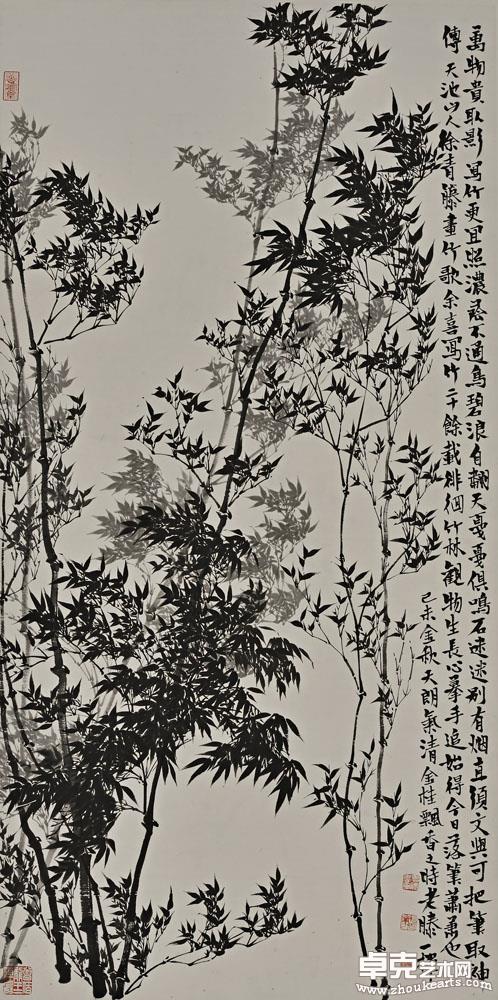 萬物貴取影寫竹更宜然濃陰不通鳥碧浪自翻天戛戛俱鳴石迷迷別有烟直須文與可把筆取神
傳天池山人徐青藤畫竹歌余喜寫竹二十餘載徘徊竹林觀物生長心摹手追始得今日落筆肅肅也
己未金秋天朗氣清金桂飄香之時老滕一揮
卓克艺术网
www.zhoukearts.com